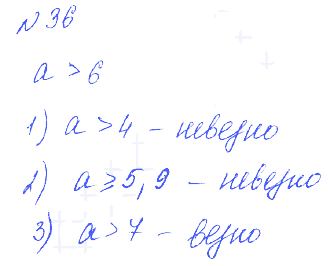 №36
a > 6
1) a > 4 – неверно
2) a ⩾ 5,9 – неверно
3) a > 7 – верно